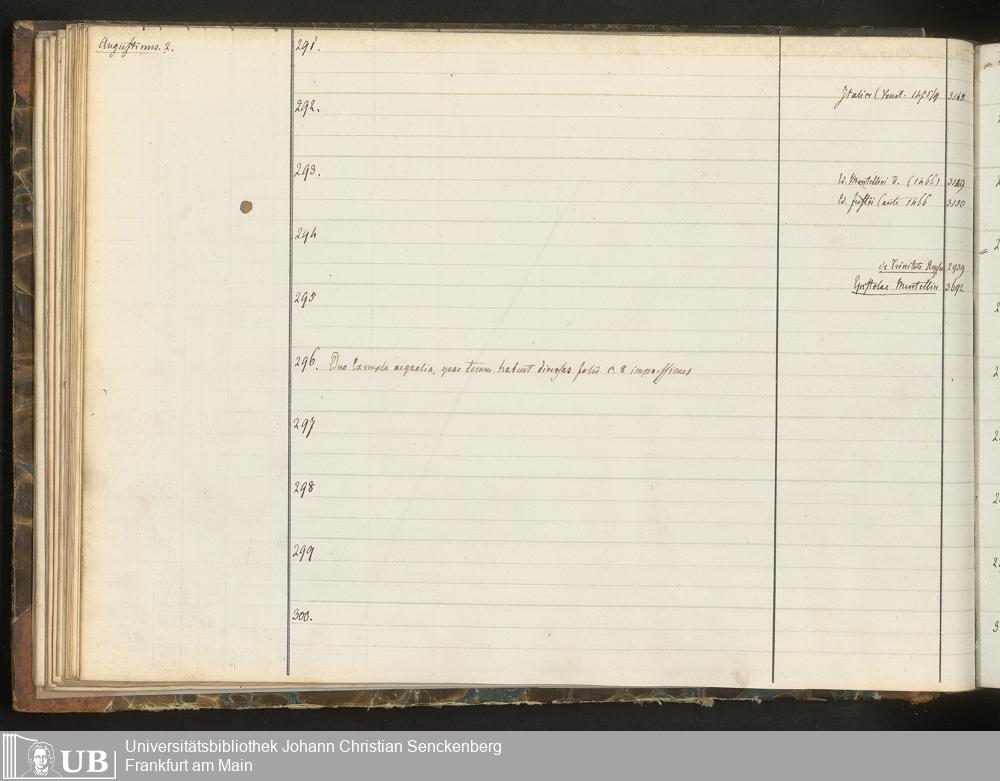 Augustinus. 2.
291.
Italice (Venet. 1475/9 3148
292.
293.
Ed. Mentellini II. (1466) 3149
Ed. fustii (ante 1466 3150
294
de Trinitate 2939
Epistolae Mentellin 3692
295
296. Duo Exempla aequalia, quae tamen diversas folii c. 8 impressiones
297
298
299
300.
UB
Universitätsbibliothek Johann Christian Senckenberg
Frankfurt am Main